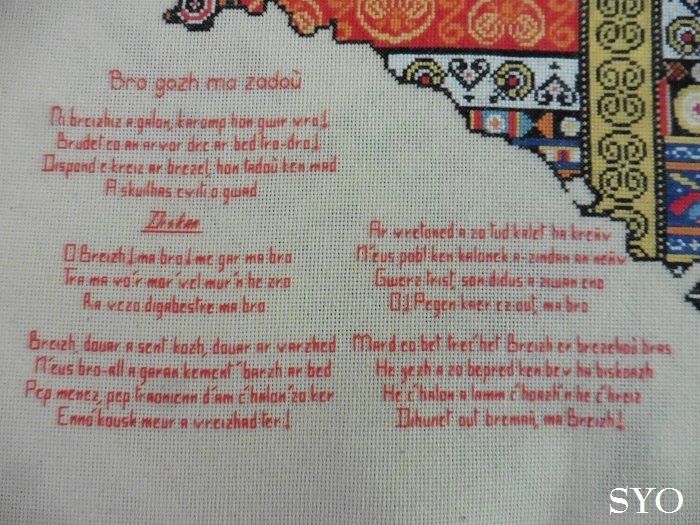 Bro gozh ma zadoù
Ni breizhiz a galon, karomp hon gwir vro!
Brudet eo an arvor dre ar bed tro-dro!
Dispond e kreiz ar brezel, hon tadoù ken mad
A skuilhas eviti o gwad
Diskan
O Breizh! ma bro! me gar ma bro
Tra ma vo'r mor 'vel mur 'n he zro
Ra vezo digabestre ma bro
Breizh, douar a sent kozh, douar ar varzhed
N'eus bro-all a garan kement 'barzh ar bed
Pep menez, pep traonienn d'am c'halon 'zo ker
Enno 'kousk meur a vreizhad ter!
Ar vretoned a zo tud kalet ha kreñv
N'eus pobl ken kalonek a-zindan an neñv
Gwerz trist, son didus a ziwan eno
O! Pegen kaer ez out, ma bro
Mard eo bet trec'het Breizh er brezehoù bras
He yezh a zo bepred ken bev ha biskoazh
He c'halon a lamm c'hoazh 'n he c'hreiz
Dihunet out bremañ, ma Breizh!
SYO